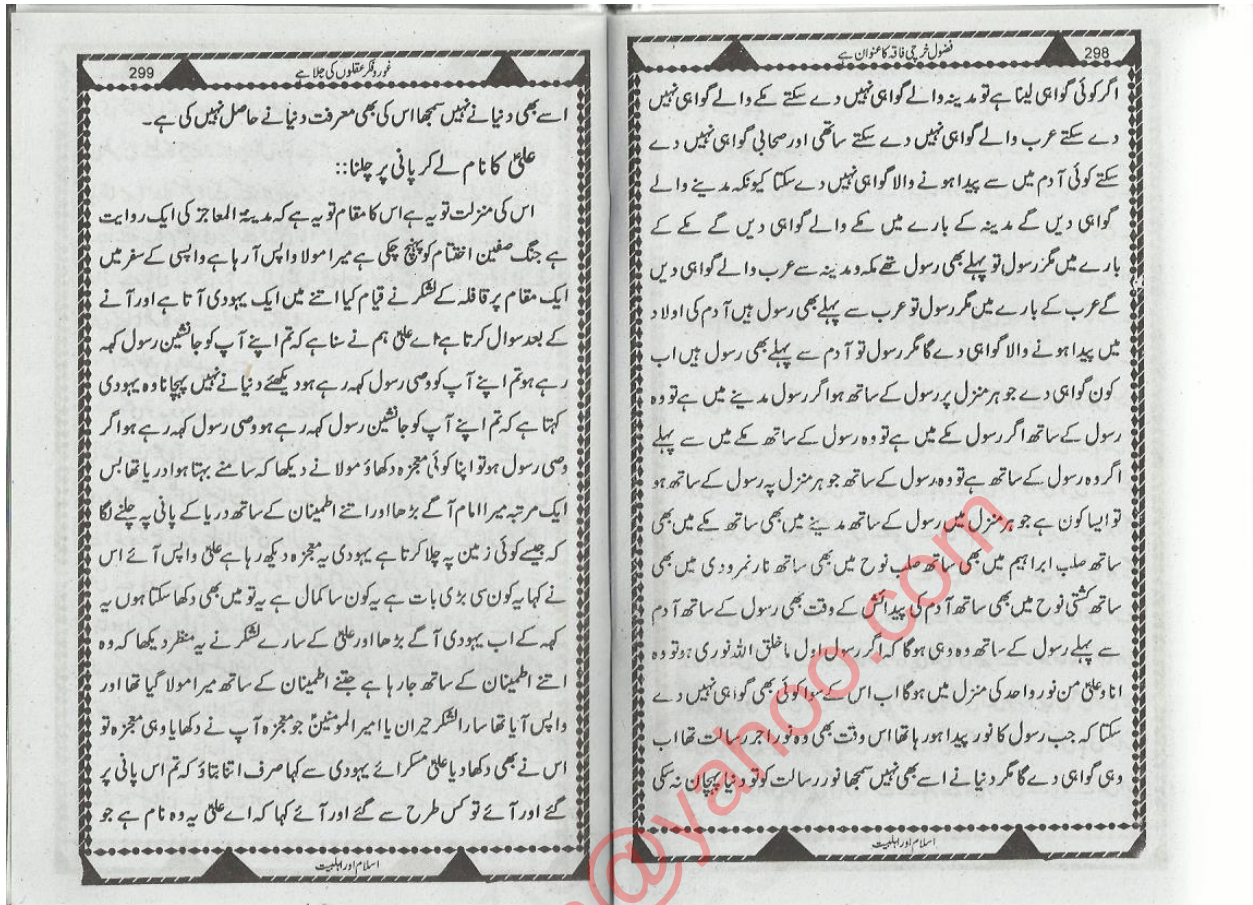 298
فضول خرچی فاقہ کا عنوان ہے
اگر کوئی گواہی لینا ہے تو مدینہ والے گواہی نہیں دے سکتے مکے والے گواہی نہیں
دے سکتے عرب والے گواہی نہیں دے سکتے ساتھی اور صحابی گواہی نہیں دے
سکتے کوئی آدم میں سے پیدا ہونے والا گواہی نہیں دے سکتا کیونکہ مدینے والے
گواہی دیں گے مدینہ کے بارے میں مکے والے گواہی دیں گے مکے کے
بارے میں مگر رسول تو پہلے بھی رسول تھے مکہ و مدینہ سے عرب والے گواہی دیں
گے عرب کے بارے میں مگر رسول تو عرب سے پہلے بھی رسول ہیں آدم کی اولاد
میں پیدا ہونے والا گواہی دے گا مگر رسول تو آدم سے پہلے بھی رسول ہیں اب
کون گواہی دے جو ہر منزل پر رسول کے ساتھ ہو اگر رسول مدینے میں ہے تو وہ
رسول کے ساتھ اگر رسول مکے میں ہے تو وہ رسول کے ساتھ مکے میں سے پہلے
اگر وہ رسول کے ساتھ ہے تو وہ رسول کے ساتھ جو ہر منزل پہ رسول کے ساتھ ہو
تو ایسا کون ہے جو ہر منزل میں رسول کے ساتھ مدینے میں بھی ساتھ مکے میں بھی
ساتھ صلب ابراہیم میں بھی ساتھ صلب نوح میں بھی ساتھ نار نمرودی میں بھی
ساتھ کشتی نوح میں بھی ساتھ آدم کی پیدائش کے وقت بھی رسول کے ساتھ آدم
سے پہلے رسول کے ساتھ وہ وہی ہوگا کہ اگر رسول اول ما خلق اللہ نوری ہو تو وہ
انا و علیؑ من نور واحد کی منزل میں ہوگا اب اس کے سوا کوئی بھی گواہی نہیں دے
سکتا کہ جب رسول کا نور پیدا ہو رہا تھا اس وقت بھی وہ نور اجر رسالت تھا اب
وہی گواہی دے گا مگر دنیا نے اسے بھی نہیں سمجھا نور رسالت کو تو دنیا پہچان نہ سکی
اسلام اور اہلبیت
299
غور و فکر عقلوں کی جلا ہے
اسے بھی دنیا نے نہیں سمجھا اس کی بھی معرفت دنیا نے حاصل نہیں کی ہے۔
علیؑ کا نام لے کر پانی پر چلنا::
اس کی منزلت تو یہ ہے اس کا مقام تو یہ ہے کہ مدینۃ المعاجز کی ایک روایت
ہے جنگ صفین اختتام کو پہنچ چکی ہے میرا مولا واپس آرہا ہے واپسی کے سفر میں
ایک مقام پر قافلہ کے لشکر نے قیام کیا اتنے میں ایک یہودی آتا ہے اور آنے
کے بعد سوال کرتا ہے اے علیؑ ہم نے سنا ہے کہ تم اپنے آپ کو جانشین رسول کہہ
رہے ہو تم اپنے آپ کو وصی رسول کہہ رہے ہو دیکھئے دنیا نے نہیں پہچانا وہ یہودی
کہتا ہے کہ تم اپنے آپ کو جانشین رسول کہہ رہے ہو وصی رسول کہہ رہے ہو اگر
وصی رسول ہو تو اپنا کوئی معجزہ دکھاؤ مولا نے دیکھا کہ سامنے بہتا ہوا دریا تھا بس
ایک مرتبہ میرا امام آگے بڑھا اور اتنے اطمینان کے ساتھ دریا کے پانی پہ چلنے لگا
کہ جیسے کوئی زمین پہ چلا کرتا ہے یہودی یہ معجزہ دیکھ رہا ہے علیؑ واپس آئے اس
نے کہا یہ کون سی بڑی بات ہے یہ کون سا کمال ہے یہ تو میں بھی دکھا سکتا ہوں یہ
کہہ کے اب یہودی آگے بڑھا اور علیؑ کے سارے لشکر نے یہ منظر دیکھا کہ وہ
اتنے اطمینان کے ساتھ جا رہا ہے جتنے اطمینان کے ساتھ میرا مولا گیا تھا اور
واپس آیا تھا سارا لشکر حیران یا امیر المومنینؑ جو معجزہ آپ نے دکھایا وہی معجزہ تو
اس نے بھی دکھا دیا علیؑ مسکرائے یہودی سے کہا صرف اتنا بتاؤ کہ تم اس پانی پر
گئے اور آئے تو کس طرح سے گئے اور آئے کہا کہ اے علیؑ یہ وہ نام ہے جو
اسلام اور اہلبیت
@yahoo.com